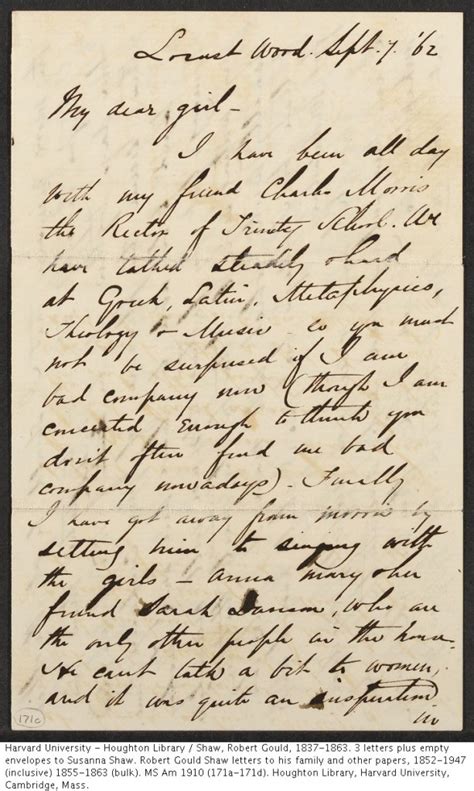 Locust Wood. Sept. 7. '62
My dear girl -
I have been all day
with my friend Charles Morris
the Rector of Trinity School. We
have talked steadily & hard
at Greek, Latin, Metaphysics,
Theology & Music - so you must
not be surprised if I am
bad company now (though I am
conceited enough to think you
don't often find me bad
company nowadays) - Finally
I have got away from Morris by
setting him to singing with
the girls - Anna Mary & her
friend Sarah, who are
the only other people in the house.
He can't talk a bit to women,
and it was quite an inspiration
in
171c
Harvard University - Houghton Library / Shaw, Robert Gould, 1837-1863. 3 letters plus empty
envelopes to Susanna Shaw. Robert Gould Shaw letters to his family and other papers, 1852-1947
(inclusive) 1855-1863 (bulk). MS Am 1910 (171a-171d). Houghton Library, Harvard University,
Cambridge, Mass.